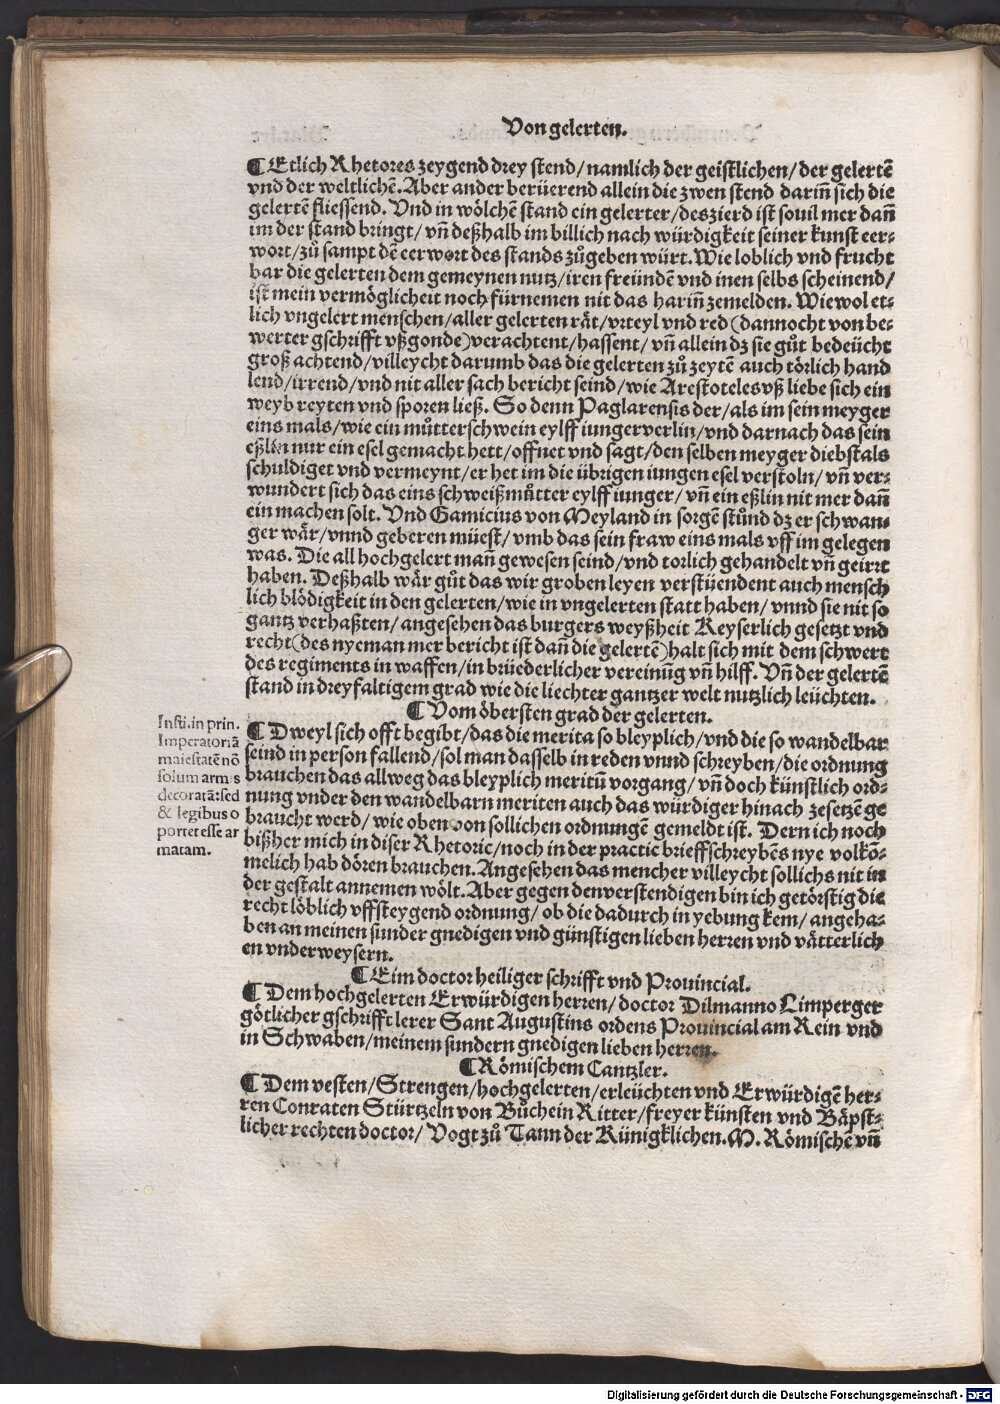 Von gelerten.
¶ Etlich Rhetores zeygend drey stend/ namlich der geistlichen/ der gelertē
vnd der weltlichē. Aber ander berüerend allein die zwen stend darin̄ sich die
gelertē fliessend. Vnd in wölchē stand ein gelerter/ deszierd ist souil mer dan̄
im der stand bringt/ vn̄ deßhalb im billich nach würdigkeit seiner kunst eer⸗
wort/ zů sampt dē eerwort des stands zůgeben würt. Wie loblich vnd frucht
bar die gelerten dem gemeynen nutz/ iren freündē vnd inen selbs scheinend/
ist mein vermöglicheit noch fürnemen nit das harin̄ zemelden. Wiewol et⸗
lich vngelert menschen/ aller gelerten rät/ vrteyl vnd red (dannocht von be⸗
werter gschrifft vßgonde) verachtent/ hassent/ vn̄ allein dz sie gůt bedeücht
groß achtend/ villeycht darumb das die gelerten zů zeytē auch törlich hand
lend/ irrend/ vnd nit aller sach bericht seind/ wie Arestoteles vß liebe sich ein
weyb reyten vnd sporen ließ. So denn Paglarensis der/ als im sein meyger
eins mals/ wie ein můtterschwein eylff iunger verlin/ vnd darnach das sein
eßlin nur ein esel gemacht hett/ offnet vnd sagt/ den selben meyger diebstals
schuldiget vnd vermeynt/ er het im die übrigen iungen esel verstoln/ vn̄ ver⸗
wundert sich das eins schweißmůtter eylff iunger/ vn̄ ein eßlin nit mer dan̄
ein machen solt. Vnd Gamicius von Meyland in sorgē stůnd dz er schwan⸗
ger wär/ vnnd geberen müest/ vmb das sein fraw eins mals vff im gelegen
was. Die all hochgelert man̄ gewesen seind/ vnd torlich gehandelt vn̄ geirrt
haben. Deßhalb wär gůt das wir groben leyen verstüendent auch mensch
lich blödigkeit in den gelerten/ wie in vngelerten statt haben/ vnnd sie nit so
gantz verhaßten/ angesehen das burgers weyßheit Keyserlich gesetzt vnd
recht (des nyeman mer bericht ist dan̄ die gelertē) halt sich mit dem schwert
des regiments in waffen/ in brüederlicher vereinūg vn̄ hilff. Vn̄ der gelertē
stand in dreyfaltigem grad wie die liechter gantzer welt nutzlich leüchten.
¶ Vom öbersten grad der gelerten.
Insti. in prin.
Imperatoriā
maiestatē nō
solum armis
decoratā: sed
& legibus o
portet esse ar
matam.
¶ Dweyl sich offt begibt/ das die merita so bleyplich/ vnd die so wandelbar
seind in person fallend/ sol man dasselb in reden vnnd schreyben/ die ordnung
brauchen das allweg das bleyplich meritū vorgang/ vn̄ doch künstlich ord⸗
nung vnder den wandelbarn meriten auch das würdiger hinach zesetzē ge
braucht werd/ wie oben von sollichen ordnungē gemeldt ist. Dern ich noch
bißher mich in diser Rhetoric/ noch in der practic brieffschreybēs nye volkō⸗
melich hab dören brauchen. Angesehen das mencher villeycht sollichs nit in
der gestalt annemen wölt. Aber gegen den verstendigen bin ich getörstig die
recht löblich vffsteygend ordnung/ ob die dadurch in yebung kem/ angeha⸗
ben an meinen sunder gnedigen vnd günstigen lieben herren vnd vätterlich
en vnderweysern.
¶ Eim doctor heiliger schrifft vnd Prouincial.
¶ Dem hochgelerten Erwürdigen herren/ doctor Dilmanno Limperger
götlicher gschrifft lerer Sant Augustins ordens Prouincial am Rein vnd
in Schwaben/ meinem sundern gnedigen lieben herren.
¶ Römischem Cantzler.
¶ Dem vesten/ Strengen/ hochgelerten/ erleüchten vnd Erwürdigē her⸗
ren Conraten Stürtzeln von Bůchein Ritter/ freyer künsten vnd Bäpst⸗
licher rechten doctor/ Vogt zů Tann der Künigklichen. M. Römischē vn̄
Digitalisierung gefördert durch die Deutsche Forschungsgemeinschaft - DFG